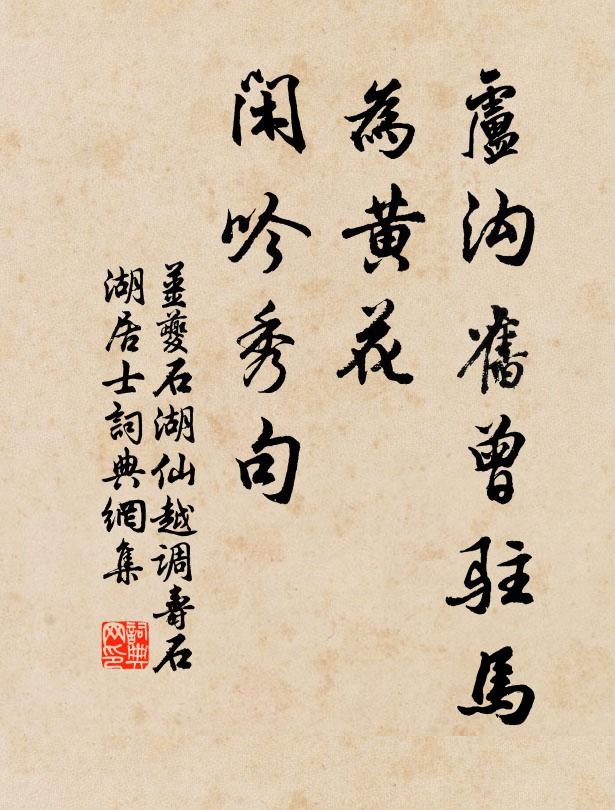 盧沟舊曾駐馬
為黄花
閑吟秀句
姜夔石湖仙越調壽石
湖居士詞典網集
詞典
网印